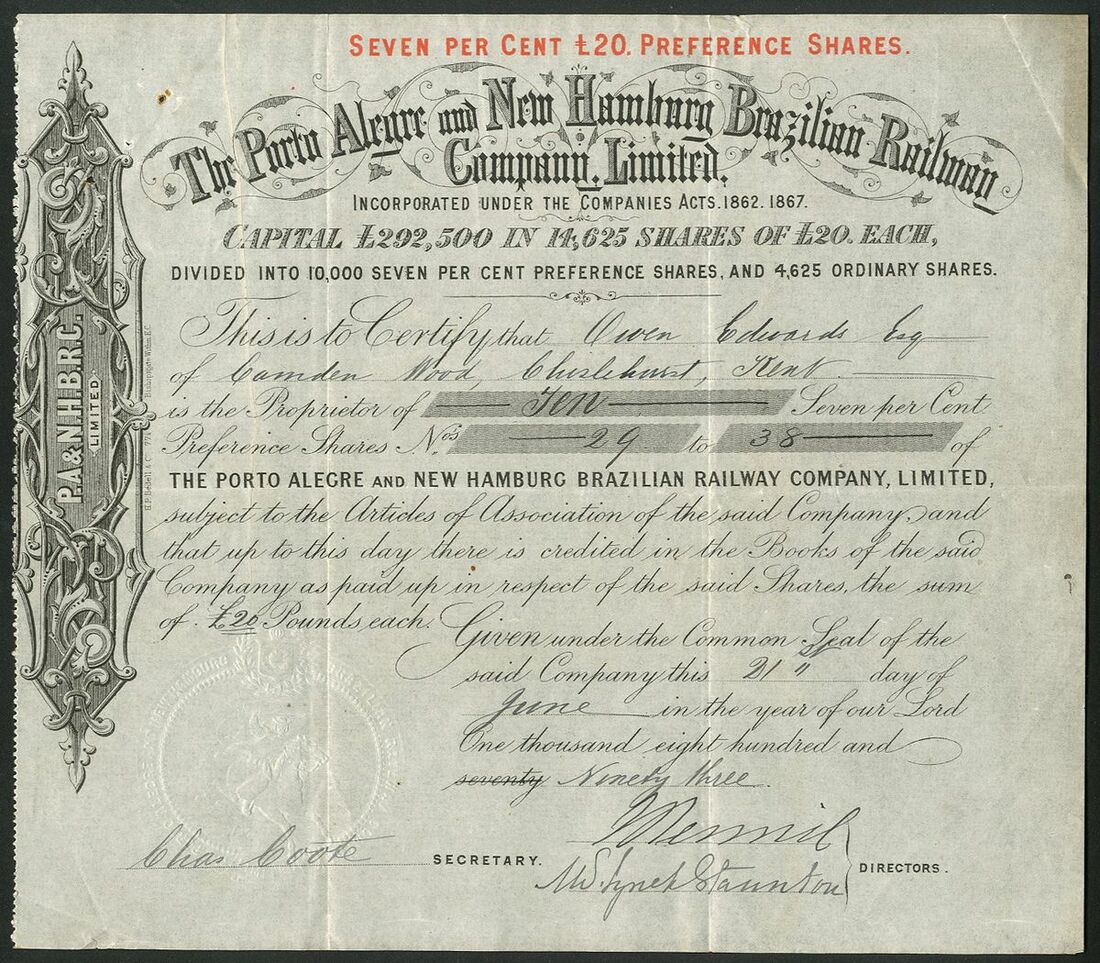 SEVEN PER CENT £20. PREFERENCE SHARES.
The Porto Alegre and New Hamburg Brazilian Railway
Company, Limited.
INCORPORATED UNDER THE COMPANIES ACTS. 1862. 1867.
CAPITAL £292,500 IN 14,625 SHARES OF £20. EACH,
DIVIDED INTO 10,000 SEVEN PER CENT PREFERENCE SHARES, AND 4,625 ORDINARY SHARES.
This is to Certify that Owen Edwards Esq
of Camden Wood, Chislehurst, Kent
is the Proprietor of TEN Seven per Cent
Preference Shares Nos. 29 to 38 of
THE PORTO ALEGRE AND NEW HAMBURG BRAZILIAN RAILWAY COMPANY, LIMITED,
subject to the Articles of Association of the said Company, and
that up to this day there is credited in the Books of the said
Company as paid up in respect of the said Shares, the sum
of £20 Pounds each.
Given under the Common Seal of the
said Company this 21" day of
June in the year of our Lord
One thousand eight hundred and
seventy Ninety three.
Chas Coote SECRETARY.
Lynch Staunton
DIRECTORS.
P.A. & N.H.B.R.C.
LIMITED